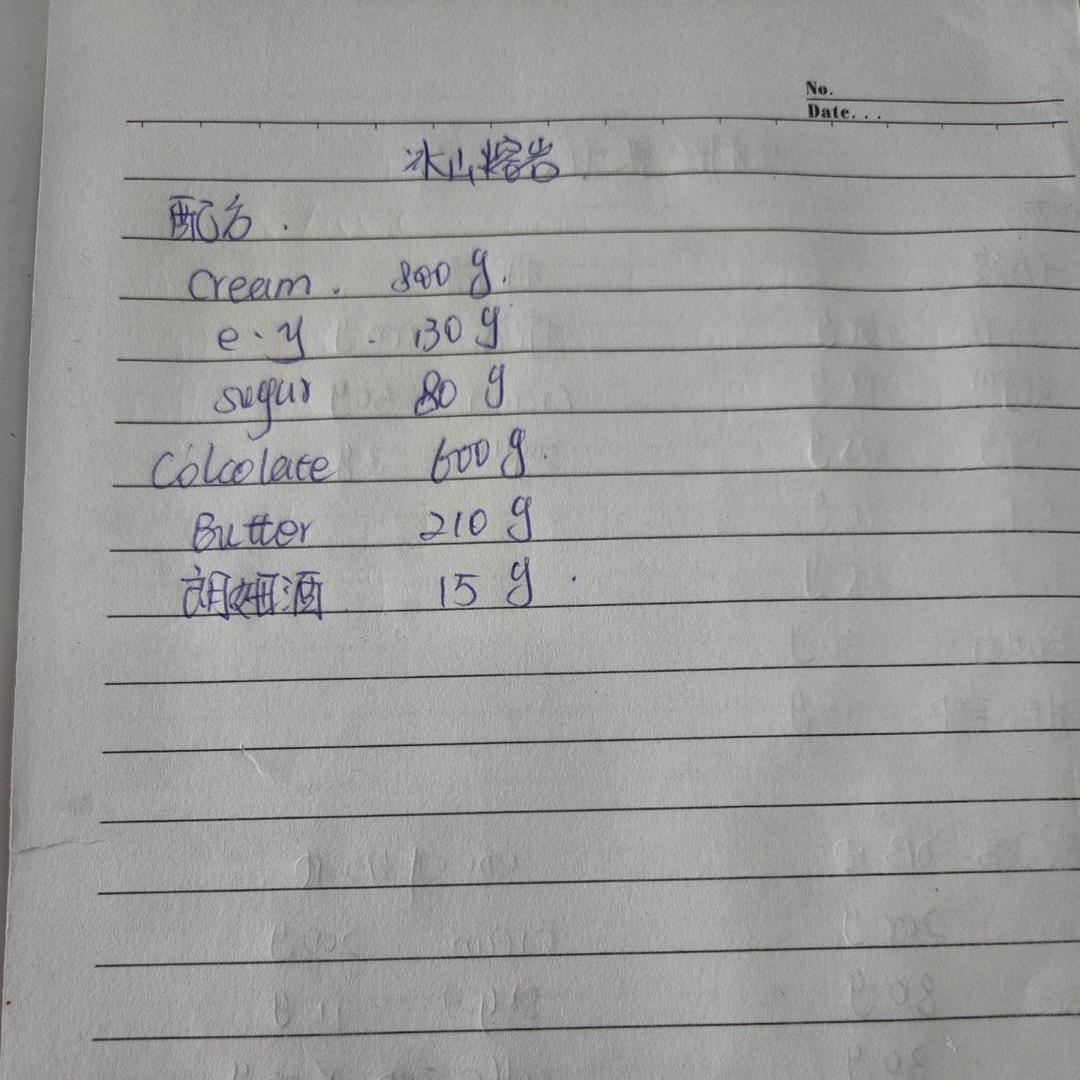 No.
Date. . .
冰山熔岩
配方.
Cream. 800 g.
e.y . 130 g
sugur 80 g
Colcolate 600 g.
Butter 210 g
朗姆酒 15 g.